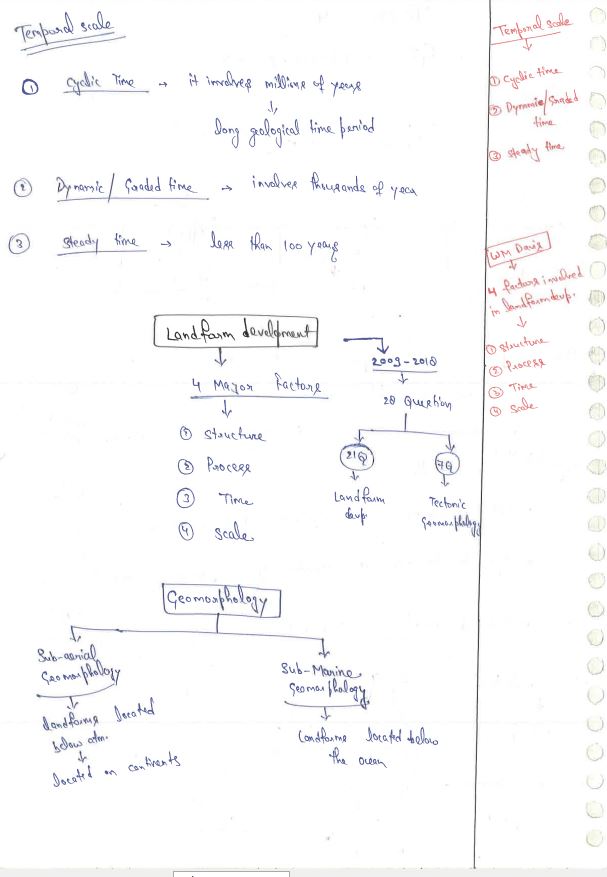 Temporal scale
① Cyclic Time → it involves millions of years
↓
long geological time period
② Dynamic/ Graded time → involves thousands of year
③ Steady time → less than 100 years
Landform development
↓
4 Major Factors
↓
① Structure
② Process
③ Time
④ Scale
2009-2018
↓
28 Question
21Q
7Q
Landform
devp.
Tectonic
Geomorphology
Geomorphology
Sub-aerial
Geomorphology
↓
Landforms located
below atm.
↓
located on continents
Sub-Marine
Geomorphology
↓
Landforms located below
the ocean
Temporal scale
↓
① Cyclic time
② Dynamic/Graded
time
③ Steady time
WM Davis
↓
4 factors involved
in landform devp.
↓
① Structure
② Process
③ Time
④ Scale